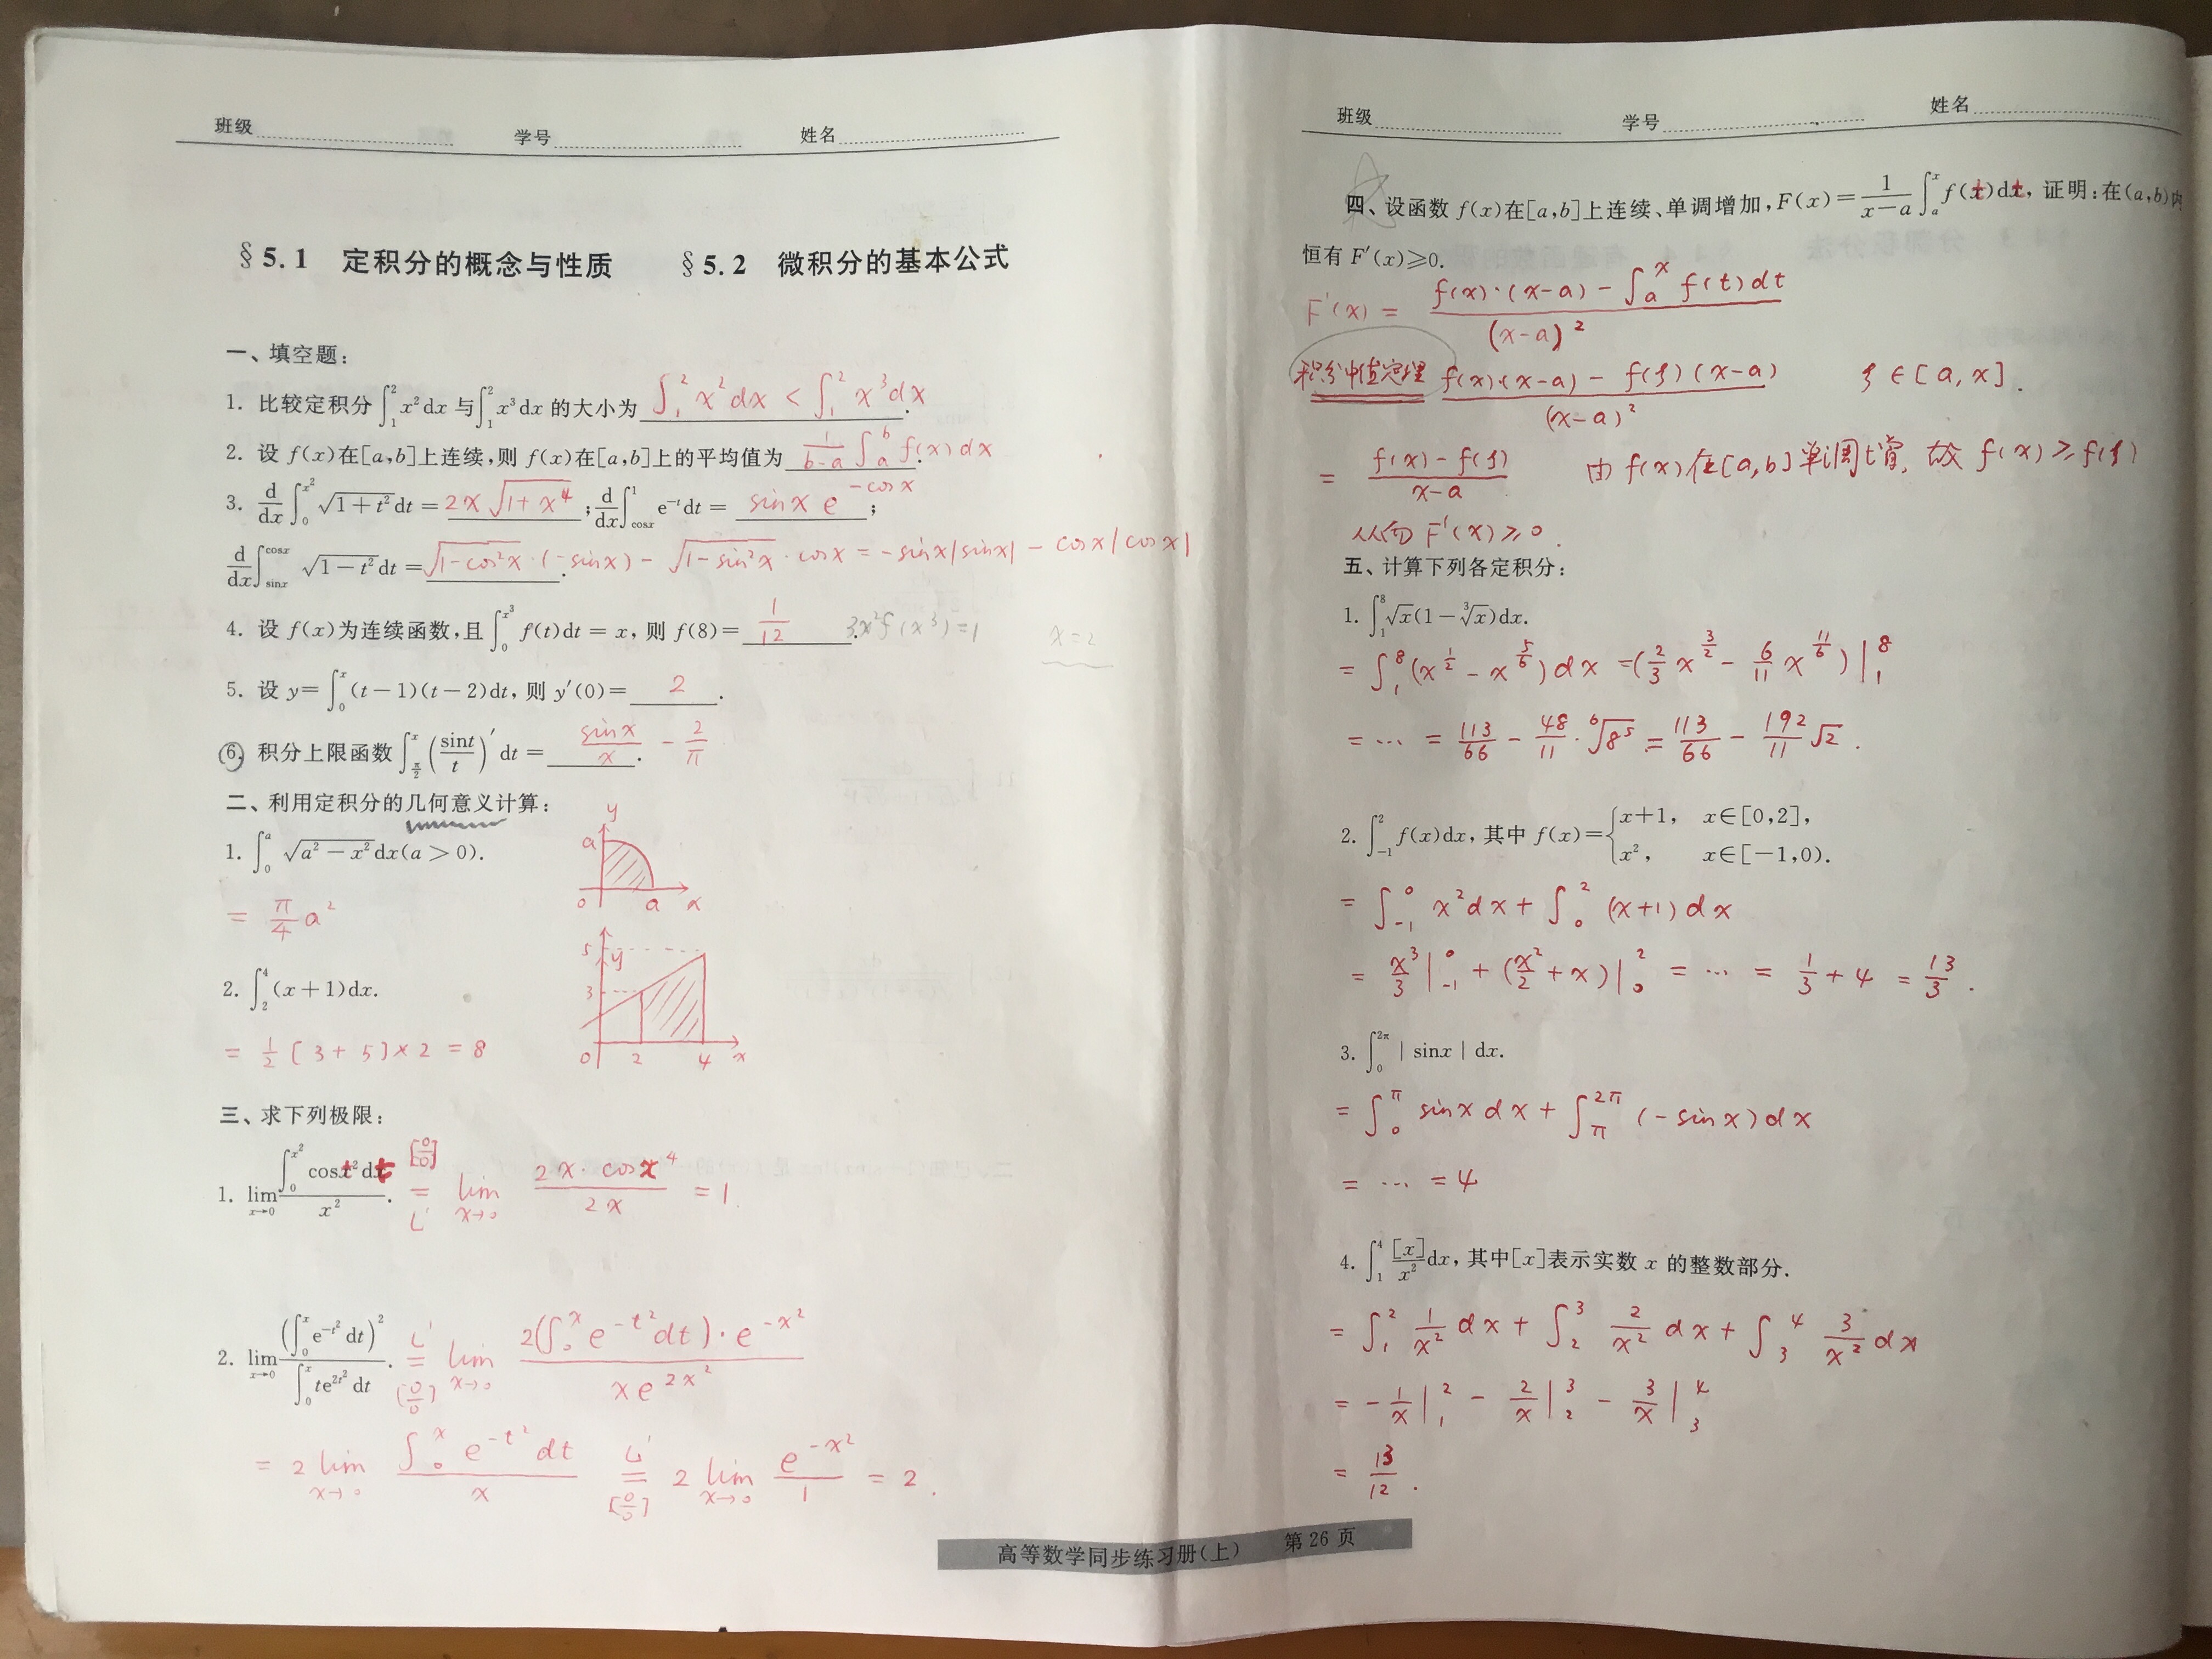 班级 学号 姓名
§5.1 定积分的概念与性质 §5.2 微积分的基本公式
一、填空题:
1. 比较定积分∫₁²x²dx与∫₁²x³dx的大小为 ∫₁²x²dx < ∫₁²x³dx .
2. 设 f(x)在[a,b]上连续,则 f(x)在[a,b]上的平均值为 1/(b-a) ∫ₐᵇ f(x)dx .
3. d/dx ∫₀^(x²) √(1+t²)dt = 2x√(1+x⁴) ; d/dx ∫_(cosx)^1 e^(-t)dt = sinx e^(-cosx) ;
d/dx ∫_(sinx)^(cosx) √(1-t²)dt = √(1-cos²x)·(-sinx) - √(1-sin²x)·cosx = -sinx|sinx| - cosx|cosx| .
4. 设 f(x)为连续函数,且∫₀^(x³) f(t)dt = x, 则 f(8)= 1/12 . 3x²f(x³)=1 x=2
5. 设 y=∫₀ˣ(t-1)(t-2)dt, 则 y′(0)= 2 .
6. 积分上限函数∫_(π/2)^x (sint/t)′dt = sinx/x - 2/π .
二、利用定积分的几何意义计算:
1. ∫₀ᵃ √(a²-x²)dx(a>0).
y
a
0 a x
= π/4 a²
5 y
2. ∫₂⁴(x+1)dx.
3
= 1/2 [3+5]×2 = 8
0 2 4 x
三、求下列极限:
1. lim_(x→0) (∫₀^(x²) cost²dt)/x² . [0/0] = L' lim_(x→0) (2x·cosx⁴)/(2x) = 1
2. lim_(x→0) (∫₀ˣe^(-t²)dt)²/(∫₀ˣte^(2t²)dt) . L' = [0/0] lim_(x→0) (2(∫₀ˣe^(-t²)dt)·e^(-x²))/(xe^(2x²))
= 2 lim_(x→0) (∫₀ˣe^(-t²)dt)/x L' = [0/0] 2 lim_(x→0) e^(-x²)/1 = 2 .
班级 学号 姓名
四、设函数 f(x)在[a,b]上连续、单调增加,F(x)=1/(x-a) ∫ₐˣf(t)dt, 证明:在(a,b)内
恒有 F′(x)⩾0.
F'(x) = (f(x)·(x-a) - ∫ₐˣ f(t)dt)/(x-a)²
积分中值定理 (f(x)·(x-a) - f(ξ)(x-a))/(x-a)² ξ∈[a,x].
= (f(x)-f(ξ))/(x-a) 由 f(x)在[a,b]单调增, 故 f(x)≥f(ξ)
从而 F'(x)≥0 .
五、计算下列各定积分:
1. ∫₁⁸√x(1-∛x)dx.
= ∫₁⁸(x^(1/2) - x^(5/6))dx =(2/3 x^(3/2) - 6/11 x^(11/6))|₁⁸
= ⋯ = 113/66 - 48/11 · ⁶√8⁵ = 113/66 - 192/11 √2 .
2. ∫₋₁² f(x)dx, 其中 f(x)={x+1, x∈[0,2],
x², x∈[-1,0).
= ∫₋₁⁰ x²dx + ∫₀² (x+1)dx
= x³/3|₋₁⁰ + (x²/2+x)|₀² = ⋯ = 1/3 + 4 = 13/3 .
3. ∫₀^(2π) | sinx | dx.
= ∫₀^π sinxdx + ∫_π^(2π) (-sinx)dx
= ⋯ = 4
4. ∫₁⁴ [x]/x² dx, 其中[x]表示实数 x 的整数部分.
= ∫₁² 1/x² dx + ∫₂³ 2/x² dx + ∫₃⁴ 3/x² dx
= -1/x|₁² - 2/x|₂³ - 3/x|₃⁴
= 13/12 .
高等数学同步练习册(上) 第 26 页